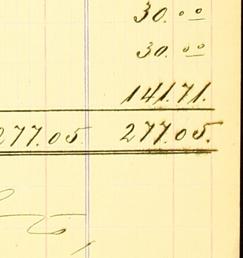 30.00
30.00
141.71.
277.05 277.05.